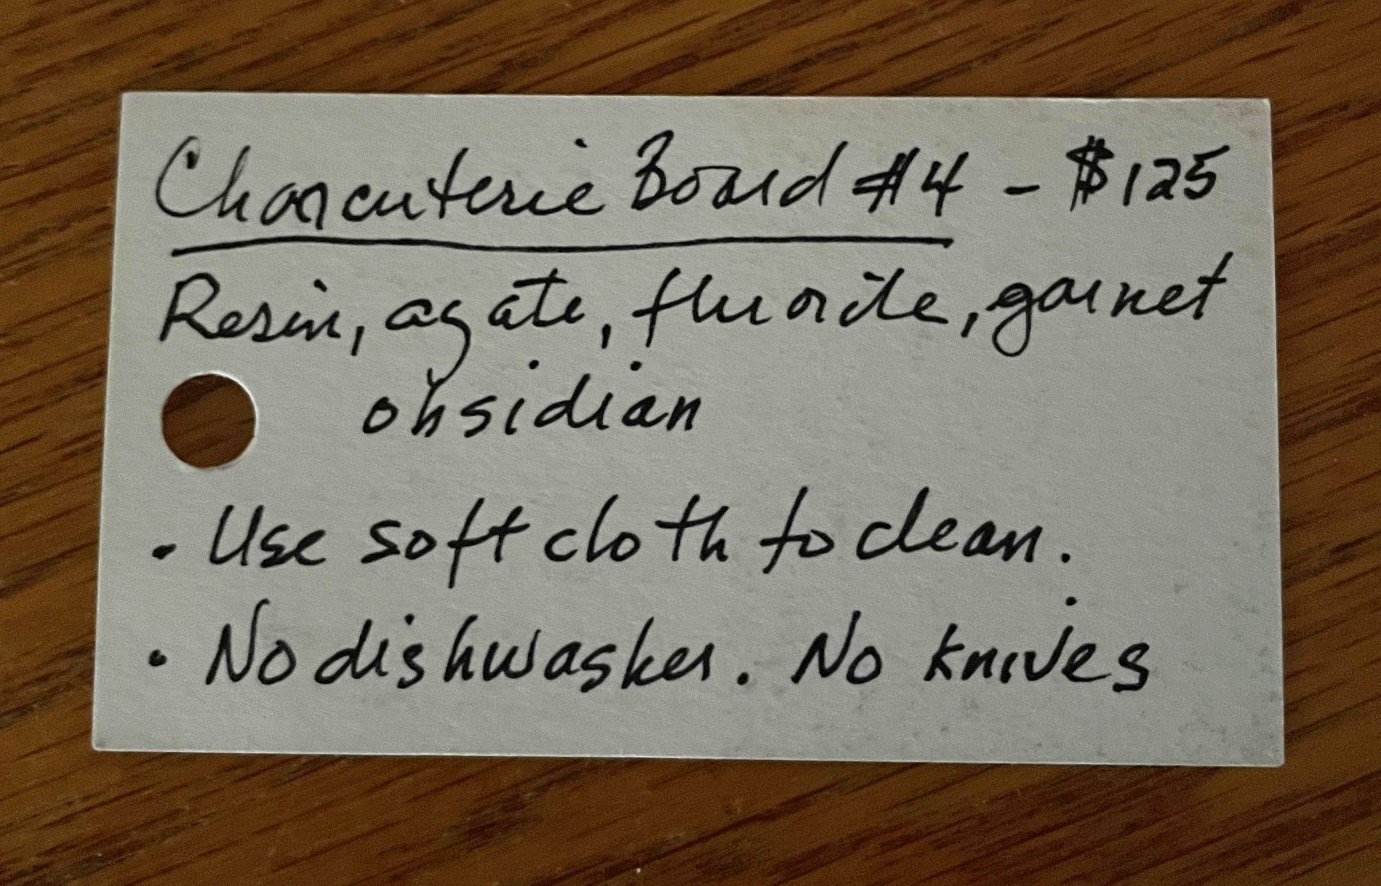 Charcuterie Board #4 - $125
Resin, agate, fluorite, garnet
obsidian
• Use soft cloth to clean.
• No dishwasher. No knives